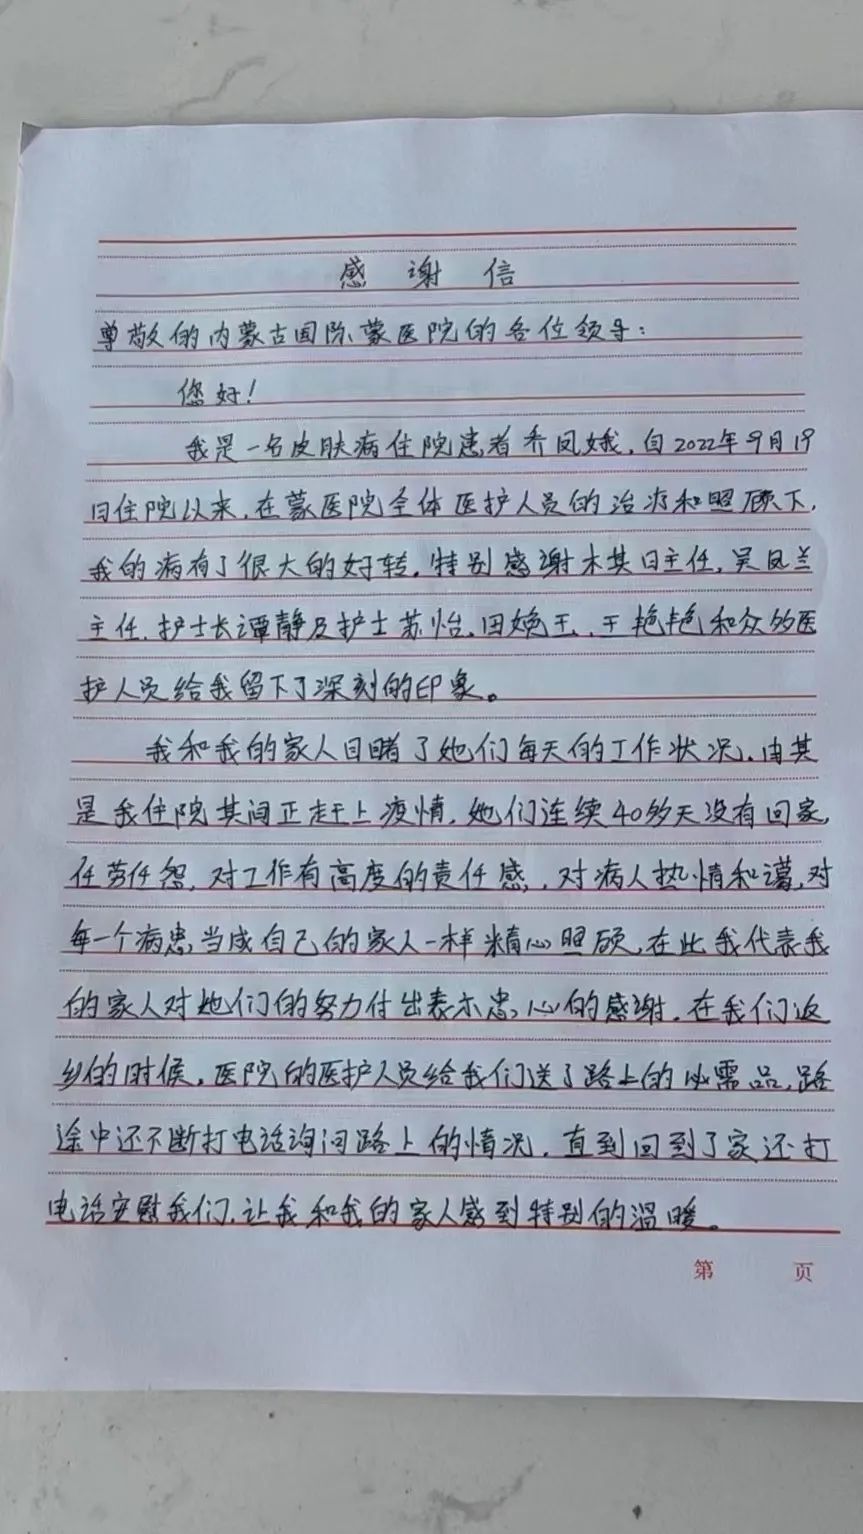 感谢信
尊敬的内蒙古国际蒙医院的各位领导：
您好！
我是一名皮肤病住院患者乔凤娥，自2022年9月19
日住院以来，在蒙医院全体医护人员的治疗和照顾下，
我的病有了很大的好转，特别感谢木其日主任，吴凤兰
主任，护士长谭静及护士苏怡，田婉玉，王艳艳和众多医
护人员给我留下了深刻的印象。
我和我的家人目睹了她们每天的工作状况，由其
是我住院其间正赶上疫情，她们连续40多天没有回家，
任劳任怨，对工作有高度的责任感，对病人热情和蔼，对
每一个病患当成自己的家人一样精心照顾，在此我代表我
的家人对她们的努力付出表示忠心的感谢，在我们返
乡的时候，医院的医护人员给我们送了路上的必需品，路
途中还不断打电话询问路上的情况，直到回到了家还打
电话安慰我们，让我和我的家人感到特别的温暖。
第 页